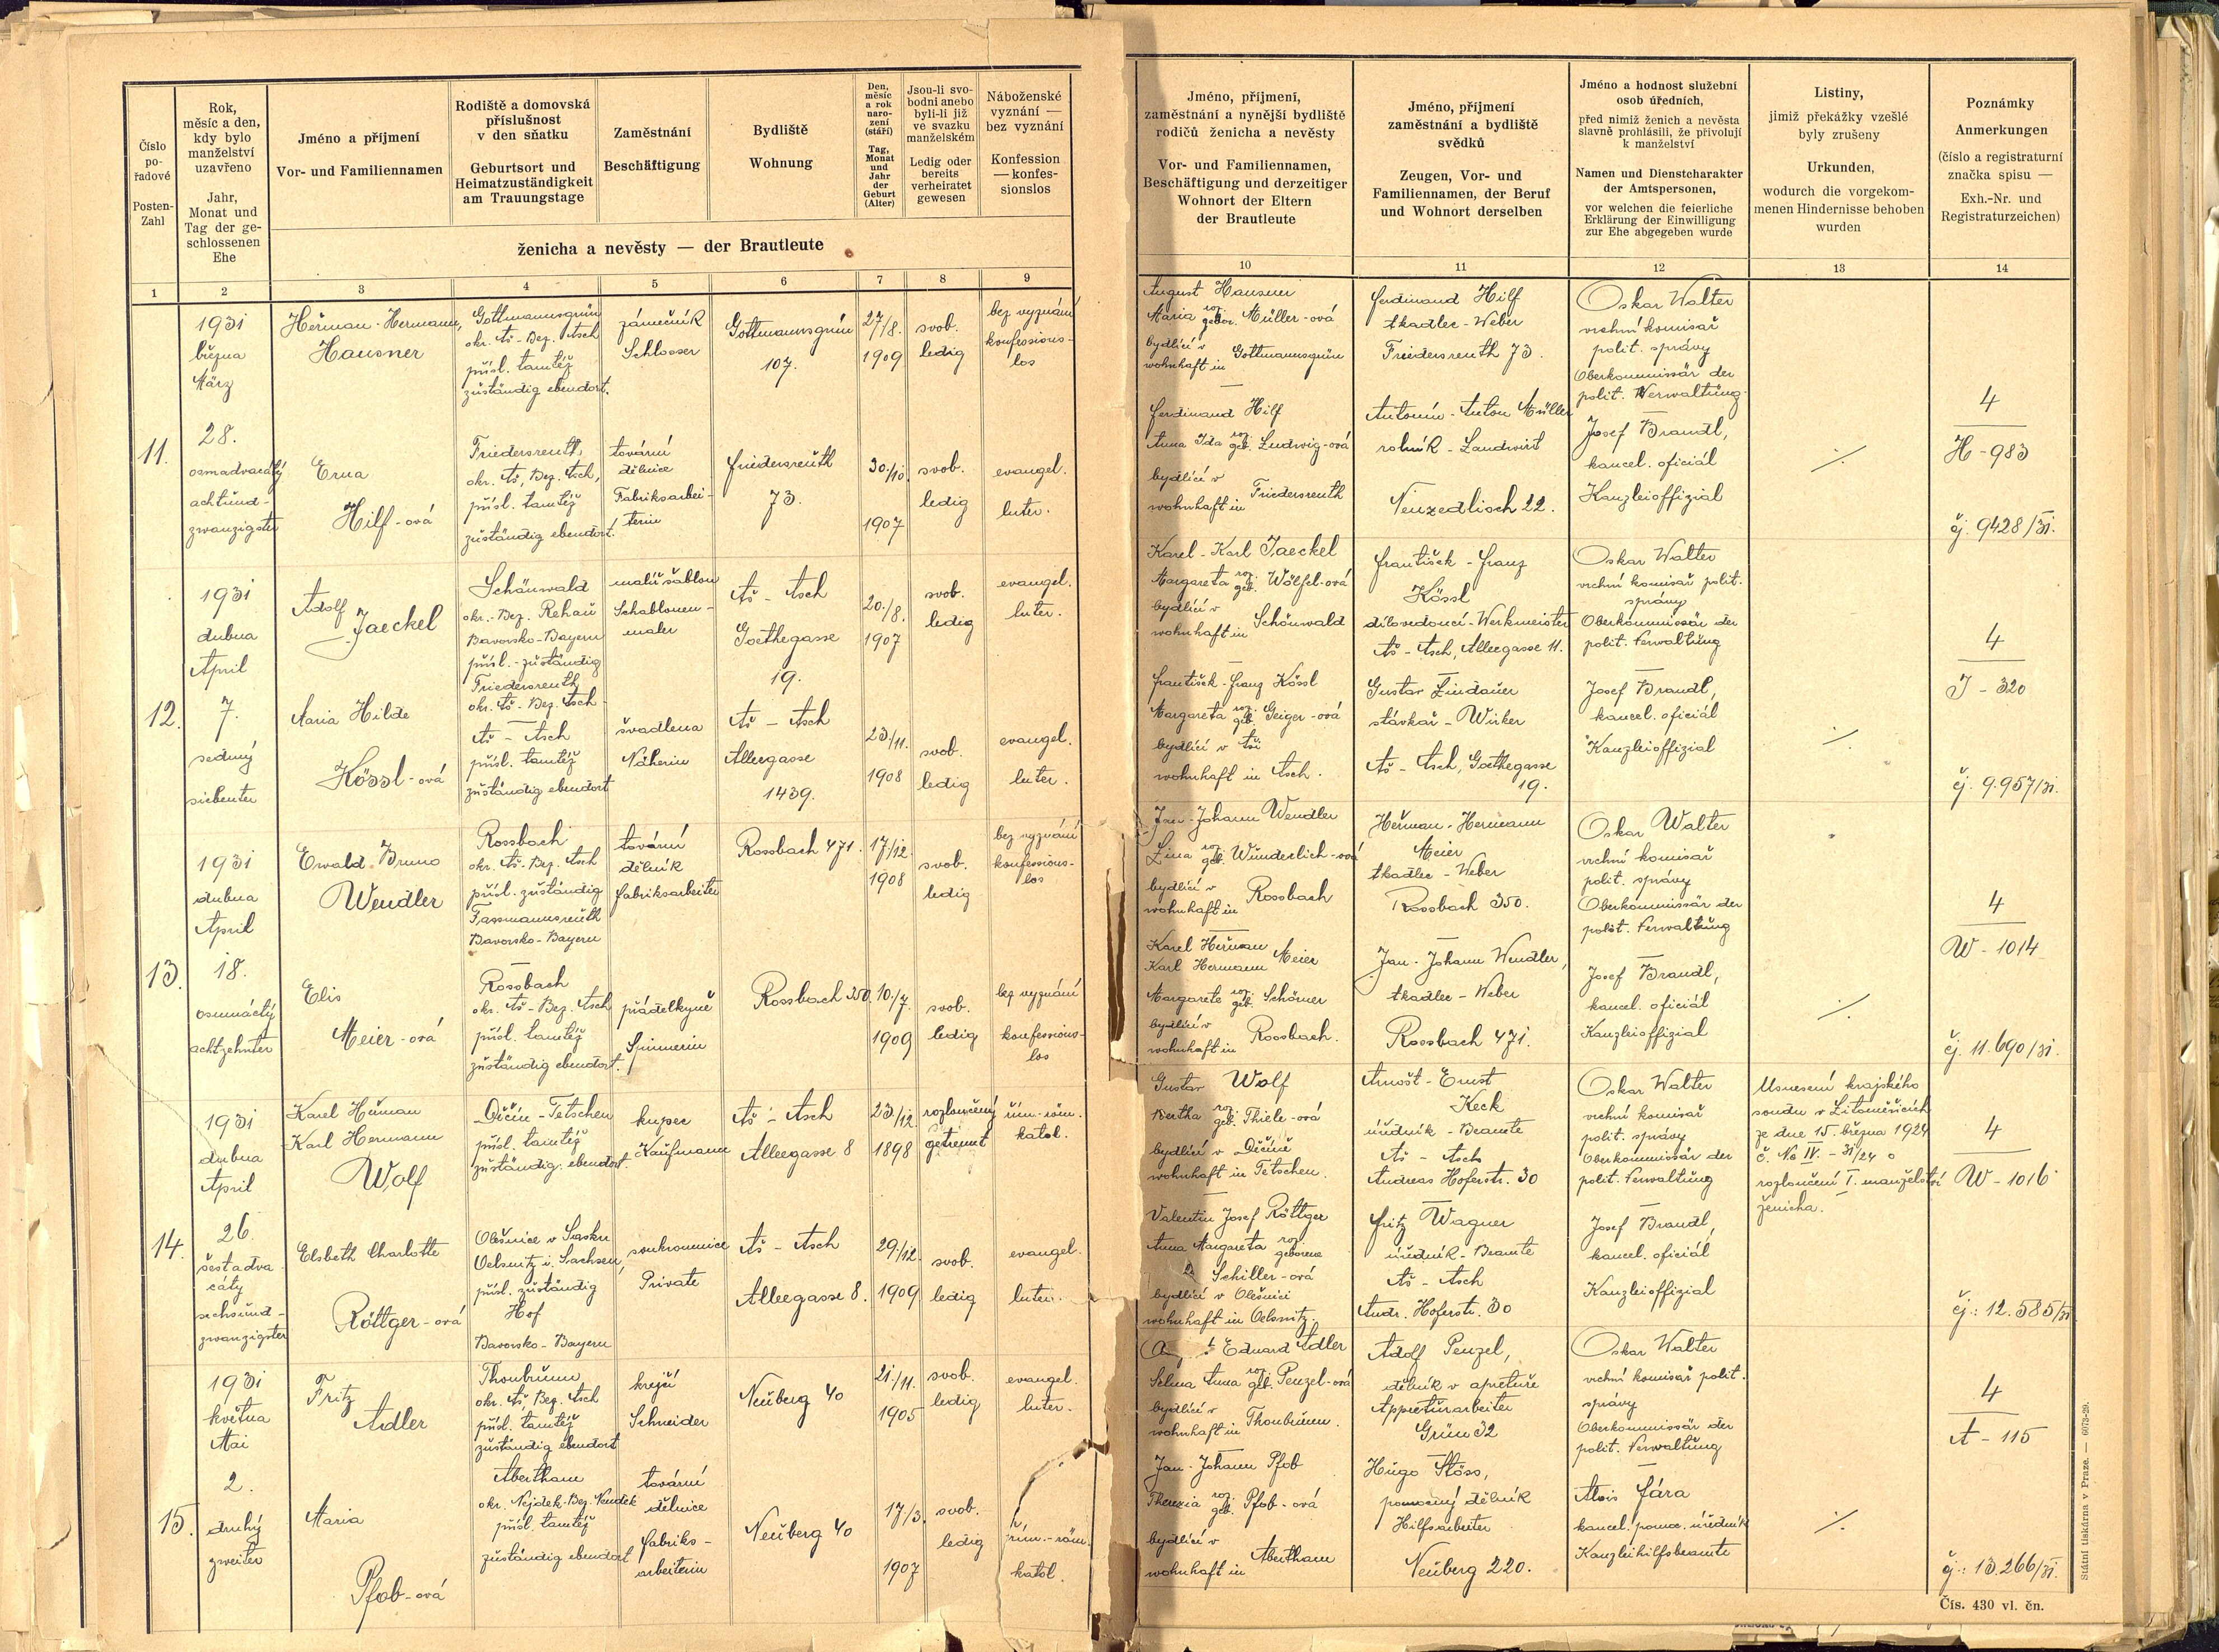 Číslo pořadové
Posten-Zahl
Rok, měsíc a den, kdy bylo manželství uzavřeno
Jahr, Monat und Tag der geschlossenen Ehe
Jméno a příjmení
Vor- und Familiennamen
Rodiště a domovská příslušnost v den sňatku
Geburtsort und Heimatzuständigkeit am Trauungstage
Zaměstnání
Beschäftigung
Bydliště
Wohnung
Den, měsíc a rok narození (stáří)
Tag, Monat und Jahr der Geburt (Alter)
Jsou-li svobodni anebo byli-li již ve svazku manželském
Ledig oder bereits verheiratet gewesen
Náboženské vyznání — bez vyznání
Konfession — konfessionslos
ženicha a nevěsty — der Brautleute
Jméno, příjmení, zaměstnání a nynější bydliště rodičů ženicha a nevěsty
Vor- und Familiennamen, Beschäftigung und derzeitiger Wohnort der Eltern der Brautleute
Jméno, příjmení zaměstnání a bydliště svědků
Zeugen, Vor- und Familiennamen, der Beruf und Wohnort derselben
Jméno a hodnost služební osob úředních,
před nimiž ženich a nevěsta slavně prohlásili, že přivolují k manželství
Namen und Dienstcharakter der Amtspersonen,
vor welchen die feierliche Erklärung der Einwilligung zur Ehe abgegeben wurde
Listiny,
jimiž překážky vzešlé byly zrušeny
Urkunden,
wodurch die vorgekommenen Hindernisse behoben wurden
Poznámky
Anmerkungen
(číslo a registraturní značka spisu —
Exh.-Nr. und Registraturzeichen)
1 2 3 4 5 6 7 8 9 10 11 12 13 14
11.
1931
března
März
28.
osmadvacátý
achtund-
zwanzigster
Heřman - Hermann,
Hausner
Gottmannsgrün
okr. Aš - Bez. Asch
přísl. tamtéž
zuständig ebendort.
zámečník
Schlosser
Gottmannsgrün
107.
27/8.
1909
svob.
ledig
bez vyznání
konfessions-
los
Erna
Hilf-ová
Friedersreuth,
okr. Aš, Bez. Asch,
přísl. tamtéž
zuständig ebendort.
tovární
dělnice
Fabriksarbei-
terin
Friedersreuth
73.
30./10.
1907
svob.
ledig
evangel.
luter.
August Hausner
Maria roz. gebor. Müller-ová
bydlící v
wohnhaft in Gottmannsgrün
Ferdinand Hilf
Anna Ida roz. geb. Ludwig-ová
bydlící v
wohnhaft in Friedersreuth
Ferdinand Hilf
tkadlec - Weber
Friedersreuth 73.
Antonín - Anton Müller
rolník - Landwirt
Neuzedlisch 22.
Oskar Walter
vrchní komisař
polit. správy
Oberkommissär der
polit. Verwaltung
Josef Brandl,
kancel. oficiál
Kanzleioffizial
./.
4
H - 983
čj. 9428/31.
12.
1931
dubna
April
7.
sedmý
siebenter
Adolf
Jaeckel
Schönwald
okr.-Bez. Rehau
Bavorsko-Bayern
přísl.-zuständig
Friedersreuth
okr. Aš - Bez. Asch
malíř šablon
Schablonen-
maler
Aš - Asch
Goethegasse
19.
20./8.
1907
svob.
ledig
evangel.
luter.
Maria Hilde
Kössl-ová
Aš - Asch
přísl. tamtéž
zuständig ebendort
švadlena
Näherin
Aš - Asch
Alleegasse
1439.
23/11.
1908
svob.
ledig
evangel.
luter.
Karel - Karl Jaeckel
Margareta roz. geb. Wölfel-ová
bydlící v
wohnhaft in Schönwald
František - Franz Kössl
Margareta roz. geb. Geiger-ová
bydlící v Aši
wohnhaft in Asch.
František - Franz
Kössl
dílovedoucí - Werkmeister
Aš - Asch, Alleegasse 11.
Gustav Lindauer
stávkař - Wirker
Aš - Asch, Goethegasse
19.
Oskar Walter
vrchní komisař polit.
správy
Oberkommissär der
polit. Verwaltung
Josef Brandl,
kancel. oficiál
Kanzleioffizial
./.
4
J - 320
čj. 9.957/31.
13.
1931
dubna
April
18.
osmnáctý
achtzehnter
Ewald Bruno
Wendler
Rossbach
okr. Aš - Bez. Asch
přísl. zuständig
Fassmannsreuth
Bavorsko-Bayern
tovární
dělník
Fabriksarbeiter
Rossbach 471.
17/12.
1908
svob.
ledig
bez vyznání
konfessions-
los
Elis
Meier-ová
Rossbach
okr. Aš - Bez. Asch
přísl. tamtéž
zuständig ebendort.
přádelkyně
Spinnerin
Rossbach 350.
10./7.
1909
svob.
ledig
bez vyznání
konfessions-
los
Jan - Johann Wendler
Lina roz. geb. Wunderlich-ová
bydlící v
wohnhaft in Rossbach
Karel Heřman
Karl Hermann Meier
Margarete roz. geb. Schörner
bydlící v
wohnhaft in Rossbach.
Heřman - Hermann
Meier
tkadlec - Weber
Rossbach 350.
Jan - Johann Wendler,
tkadlec - Weber
Rossbach 471.
Oskar Walter
vrchní komisař
polit. správy
Oberkommissär der
polit. Verwaltung
Josef Brandl,
kancel. oficiál
Kanzleioffizial
./.
4
W - 1014
čj. 11.690/31.
14.
1931
dubna
April
26.
šestadva-
cátý
sechsund-
zwanzigster
Karel Heřman
Karl Hermann
Wolf
Děčín - Tetschen
přísl. tamtéž
zuständig ebendort.
kupec
Kaufmann
Aš - Asch
Alleegasse 8
23/12.
1898
rozloučený
getrennt
řím.-röm.
katol.
Elsbeth Charlotte
Röttger-ová
Olešnice v Sasku
Oelsnitz i. Sachsen,
přísl. zuständig
Hof
Bavorsko-Bayern
soukromnice
Private
Aš - Asch
Alleegasse 8.
29/12.
1909
svob.
ledig
evangel.
luter.
Gustav Wolf
Bertha roz. geb. Thiele-ová
bydlící v Děčíně
wohnhaft in Tetschen.
Valentin Josef Röttger
Anna Margareta roz. geborene
Schiller-ová
bydlící v Olešnici
wohnhaft in Oelsnitz.
Arnošt - Ernst
Keck
úředník - Beamte
Aš - Asch
Andreas Hoferstr. 30
Fritz Wagner
úředník - Beamte
Aš - Asch
Andr. Hoferstr. 30
Oskar Walter
vrchní komisař
polit. správy
Oberkommissär der
polit. Verwaltung
Josef Brandl,
kancel. oficiál
Kanzleioffizial
Usnesení krajského
soudu v Litoměřicích
ze dne 15. března 1924
č. Nc IV. - 31/24 o
rozloučení I. manželství
ženicha.
4
W - 1016
čj.: 12.585/31
15.
1931
května
Mai
2.
druhý
zweiter
Fritz
Adler
Thonbrunn
okr. Aš, Bez. Asch
přísl. tamtéž
zuständig ebendort
krejčí
Schneider
Neuberg 40
21./11.
1905
svob.
ledig
evangel.
luter.
Maria
Pfob-ová
Abertham
okr. Nejdek-Bez. Neudek
přísl. tamtéž
zuständig ebendort
tovární
dělnice
Fabriks-
arbeiterin
Neuberg 40
17/3.
1907
svob.
ledig
řím.-röm.
katol.
Eduard Adler
Selma Anna roz. geb. Penzel-ová
bydlící v
wohnhaft in Thonbrunn.
Jan - Johann Pfob
Therezia roz. geb. Pfob-ová
bydlící v
wohnhaft in Abertham
Adolf Penzel,
dělník v apretuře
Appreturarbeiter
Grün 32
Hugo Stöss,
pomocný dělník
Hilfsarbeiter
Neuberg 220.
Oskar Walter
vrchní komisař polit.
správy
Oberkommissär der
polit. Verwaltung
Alois Fára
kancel. pomoc. úředník
Kanzleihilfsbeamte
./.
4
A - 115
čj.: 13.266/31.
Státní tiskárna v Praze. — 6073-29.
Čís. 430 vl. čn.